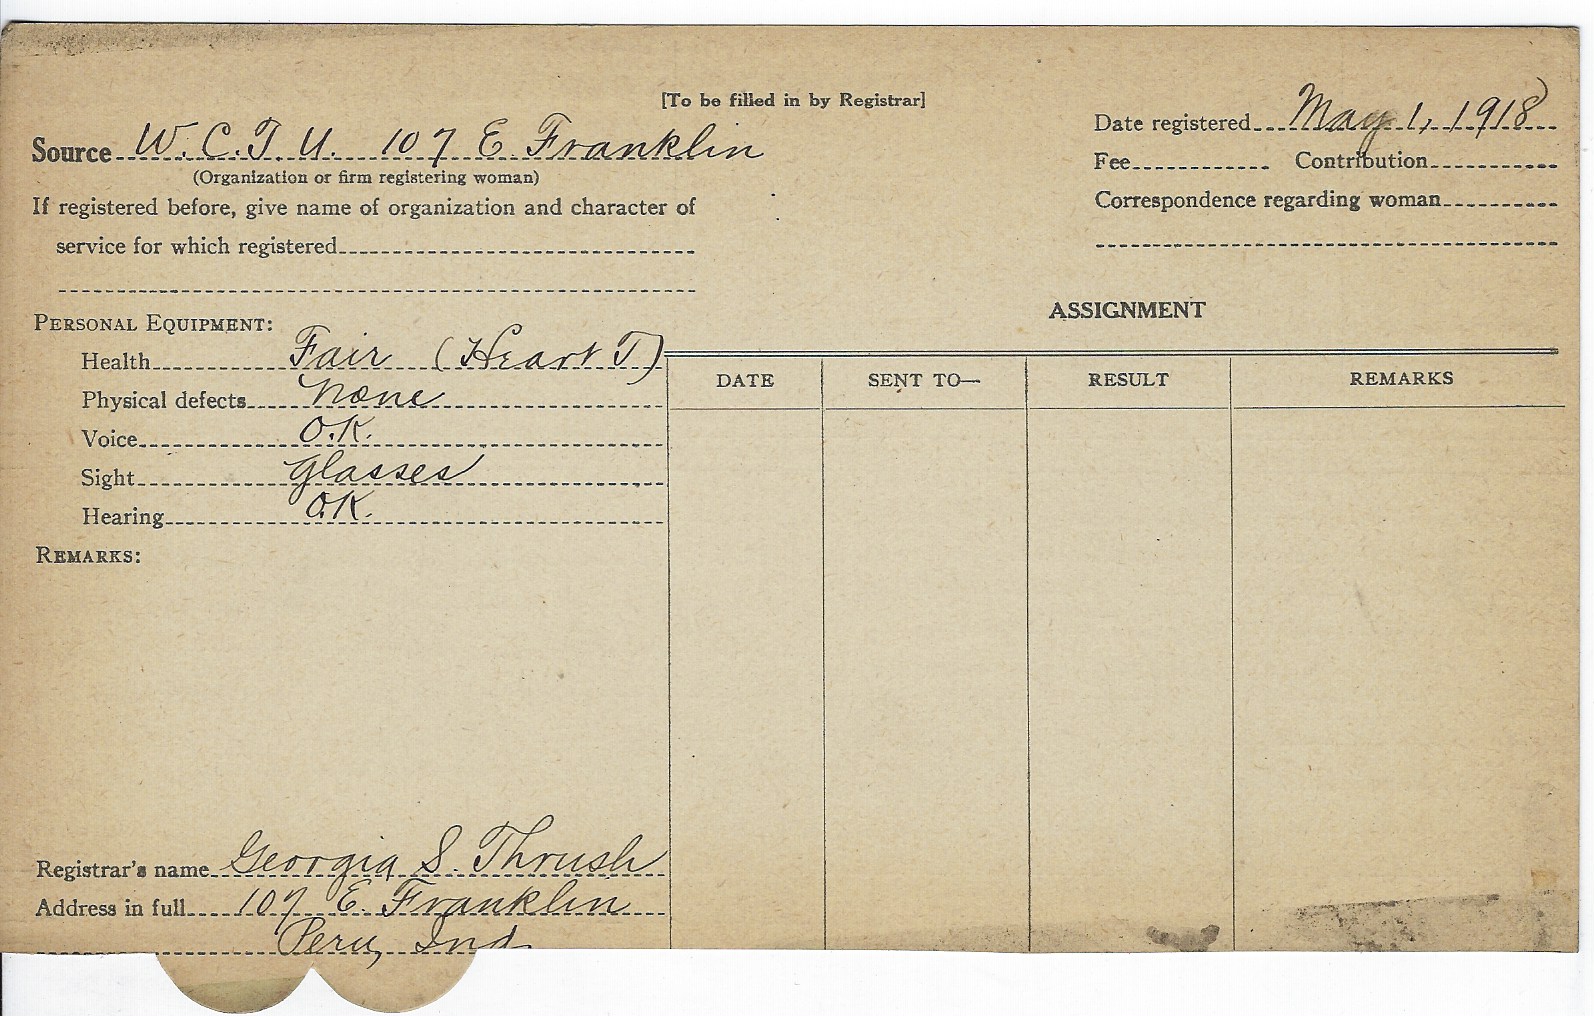 [To be filled in by Registrar]
Source W. C. T. U. 107 E. Franklin
(Organization or firm registering woman)
Date registered May 1, 1918
Fee Contribution
If registered before, give name of organization and character of
service for which registered
Correspondence regarding woman
ASSIGNMENT
PERSONAL EQUIPMENT:
Health Fair (Heart T)
Physical defects None
Voice O.K.
Sight Glasses
Hearing O.K.
REMARKS:
DATE SENT TO— RESULT REMARKS
Registrar's name Georgia S. Thrush
Address in full 107 E. Franklin
Peru, Ind